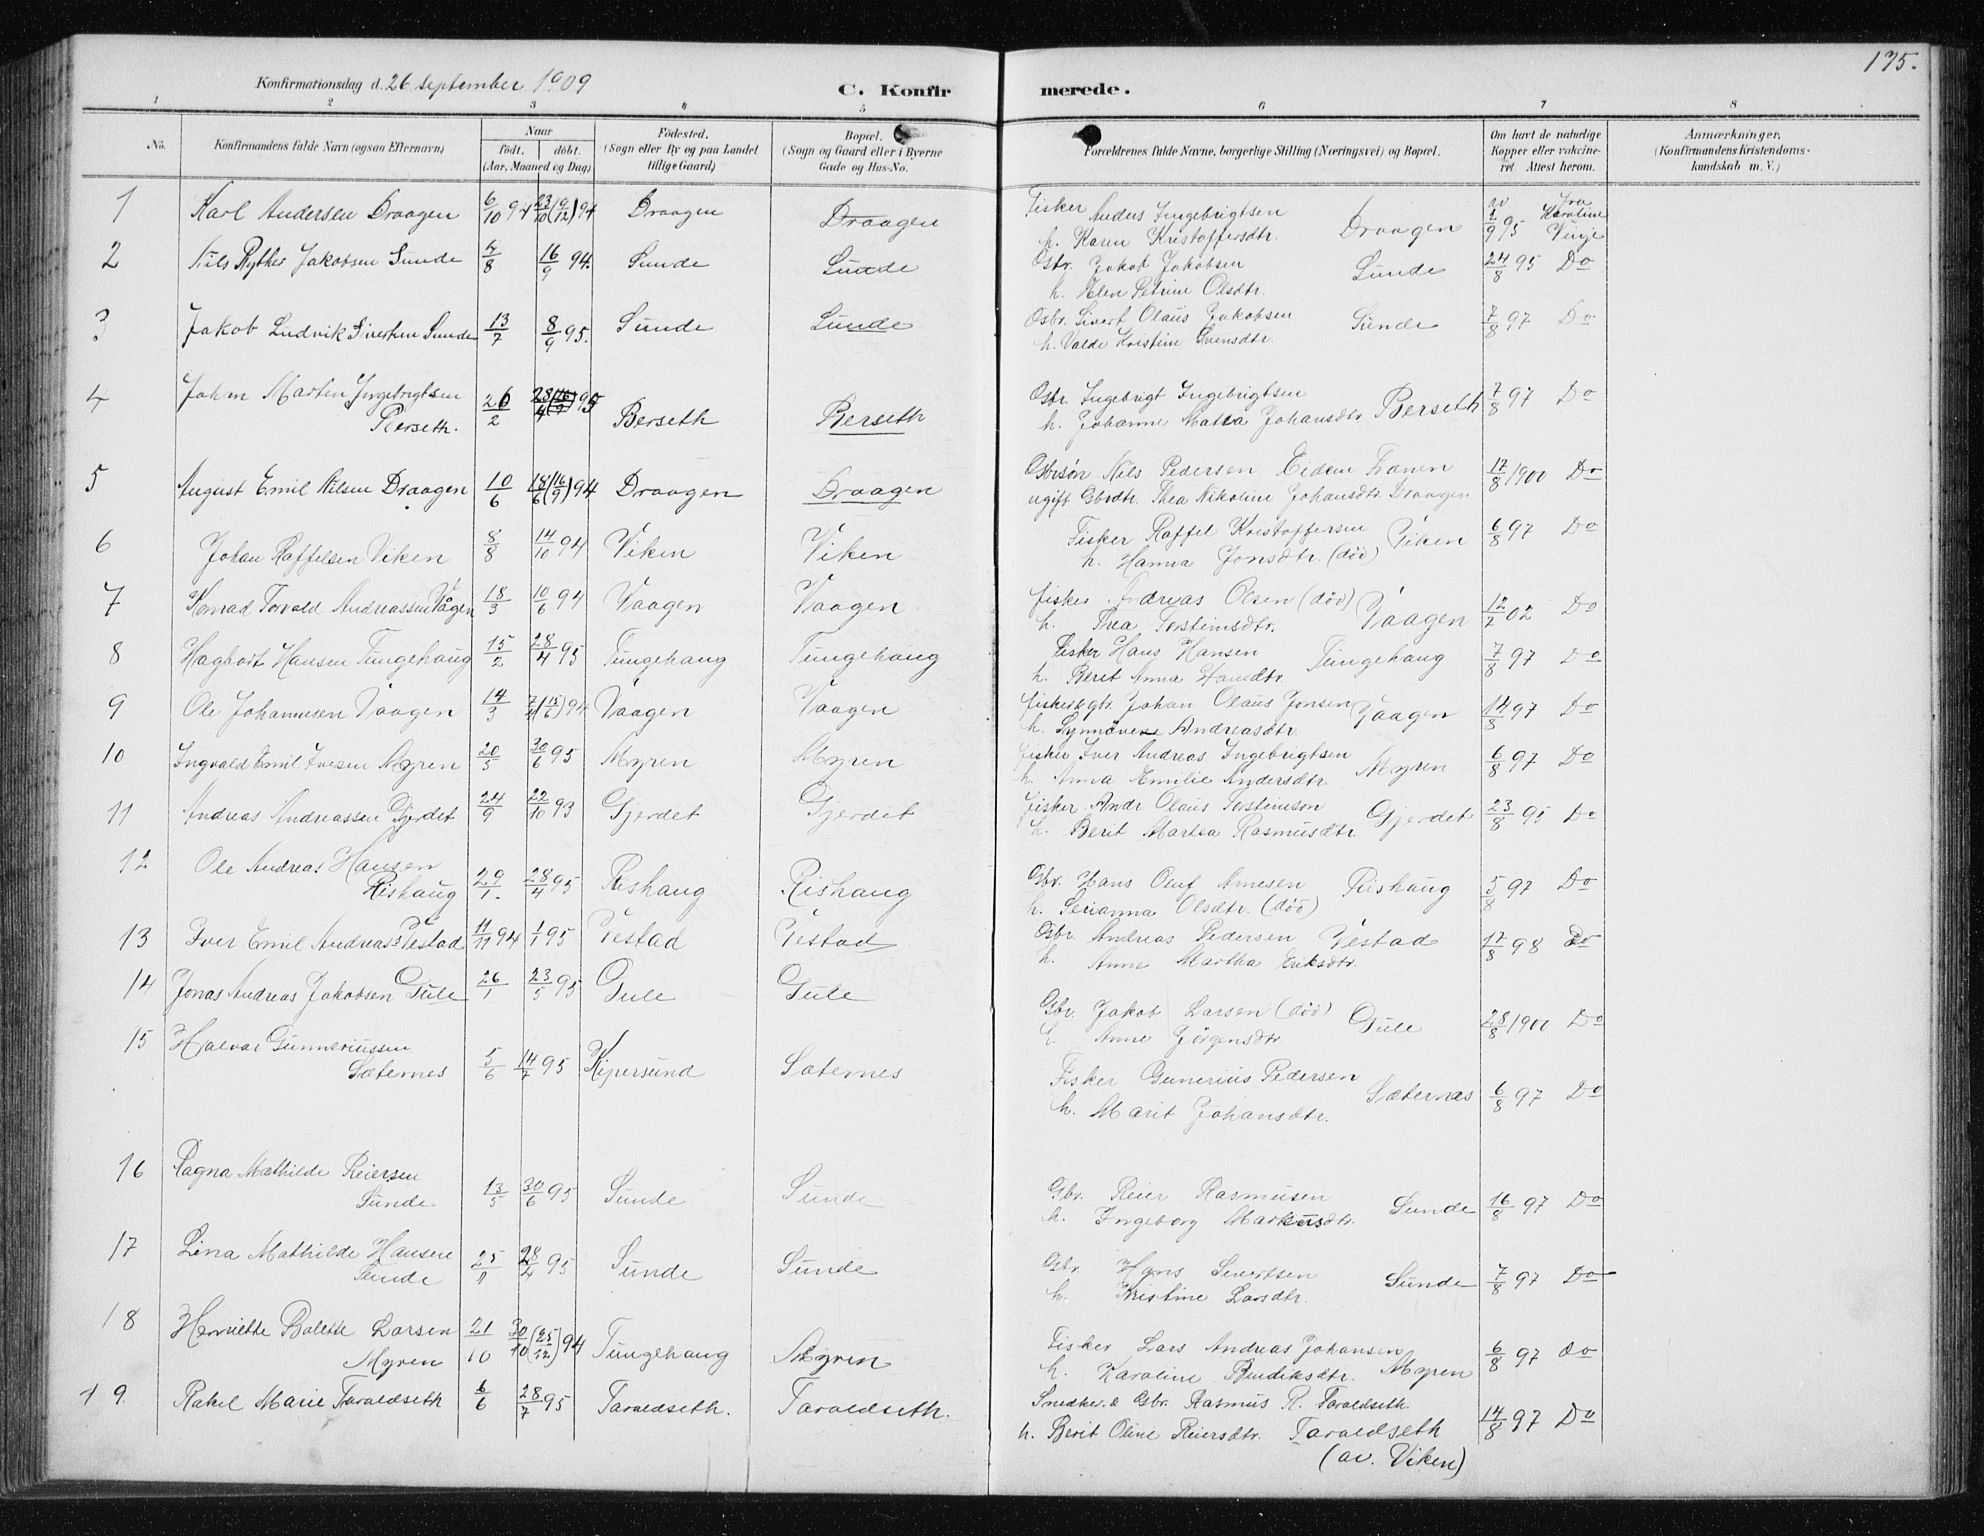 175.
Konfirmationsdag d. 26 september 1909
C. Konfirmerede.
1 2 3 4 5 6 7 8
No. Konfirmandens fulde Navn (ogsaa Efternavn) Naar født. døbt. (Aar, Maaned og Dag) Fødested. (Sogn eller By og paa Landet tillige Gaard) Bopæl. (Sogn og Gaard eller i Byerne Gade og Hus-No. Forældrenes fulde Navne, borgerlige Stilling (Næringsvei) og Bopæl. Om havt de naturlige Kopper eller vakcineret. Attest herom. Anmærkninger. (Konfirmandens Kristendomskundskab m. V.)
1 Karl Andersen Draagen 6/10 94 23/10 (9/12) 94 Draagen Draagen Fisker Anders Ingebrigtsen
h. Karen Kristoffersdtr. Draagen av 2/9 95 fra Karoline Vinje
2 Nils Ryther Jakobsen Sunde 4/8 16/9 94. Sunde Sunde Gbr. Jakob Jakobsen
h. Elen Petrine Olsdtr. Sunde 24/8 95 Do
3 Jakob Ludvik Sivertsen Sunde 13/7 8/9 95. Sunde Sunde Gbr. Sivert Olaus Jakobsen
h. Valde Kristine Svensdtr. Sunde 7/8 97 Do
4 Johan Martin Ingebrigtsen
Berseth. 26/2 28/4 95 Berseth Berseth Gbr. Ingebrigt Ingebrigtsen
h. Johanne Matea Johansdtr Berseth 7/8 97 Do
5 August Emil Nilsen Draagen 10/6 18/6 (16/9) 94 Draagen Draagen Gbrsøn Nils Pedersen Eidem Franen
ugift Gbrdtr. Thea Nikoline Johansdtr. Draagen 17/8 1900 Do
6 Johan Raffelsen Viken 8/8 14/10 94 Viken Viken Fisker Raffel Kristoffersen
h. Hanna Jonsdtr. (død) Viken 6/8 97 Do
7 Konrad Torvald Andreassen Vågen 18/3 10/6 94 Vaagen Vaagen fisker Andreas Olsen (død)
h. Thea Torsteinsdtr. Vaagen 12/2 02 Do
8 Hagbart Hansen Tungehaug 15/2 28/4 95 Tungehaug Tungehaug Fisker Hans Hansen
h. Berit Anna Hansdtr. Tungehaug 7/8 97 Do
9 Ole Johannesen Vaagen 14/3 7/4 (15/6) 94 Vaagen Vaagen fisker & gbr. Johan Olaus Jonsen
h. Synnøve Andreasdtr. Vaagen 14/8 97 Do
10 Ingvald Emil Iversen Myren 20/5 30/6 95 Myren Myren fisker Iver Andreas Ingebrigtsen
h. Anna Emilie Andersdtr. Myren 6/8 97 Do
11 Andreas Andreassen Gjerdet 24/9 22/10 93 Gjerdet Gjerdet fisker Andr. Olaus Torsteinson
h. Berit Martea Rasmusdtr Gjerdet 23/8 95 Do
12 Ole Andreas Hansen
Rishaug 29/1. 28/4 95 Rishaug Rishaug Gbr. Hans Oluf Arnesen
h. Serianna Olsdtr. (død) Rishaug 5/8 97 Do
13 Iver Emil Andreass. Vestad 11/11 94 1/1 95 Vestad Vestad Gbr. Andreas Pedersen
h. Anne Martha Eriksdtr. Vestad 17/8 98 Do
14 Jonas Andreas Jakobsen Gule 26/1 23/5 95 Gule Gule Gbr. Jakob Larsen (død)
h. Anne Jørgensdtr Gule 28/8 1900 Do
15 Halvar Gunneriussen
Sæternes 5/6 14/7 95 Kipersund Sæternes Fisker Gunerius Pedersen
h. Marit Johansdtr. Sæternæs 6/8 97 Do
16 Ragna Mathilde Reiersen
Sunde 13/5 30/6 95 Sunde Sunde Gbr. Reier Rasmusen
h. Ingeborg Markusdtr. Sunde 16/8 97 Do
17 Lina Mathilde Hansen
Sunde 25/1 28/4 95 Sunde Sunde Gbr. Hans Sivertsen
h. Kristine Larsdtr. Sunde 7/8 97 Do
18 Henriette Bolette Larsen
Myren 21/10 30/10 (25/12) 94 Tungehaug Myren Fisker Lars Andreas Johansen
h. Karoline Bendiksdtr. Myren 6/8 97 do
19. Rakel Marie Taraldseth 6/6 28/7 95 Taraldseth. Taraldseth. Snedker & Gbr. Rasmus R. Taraldseth
h. Berit Oline Reiersdtr. Taraldseth 14/8 97 Do
(av. Viken)